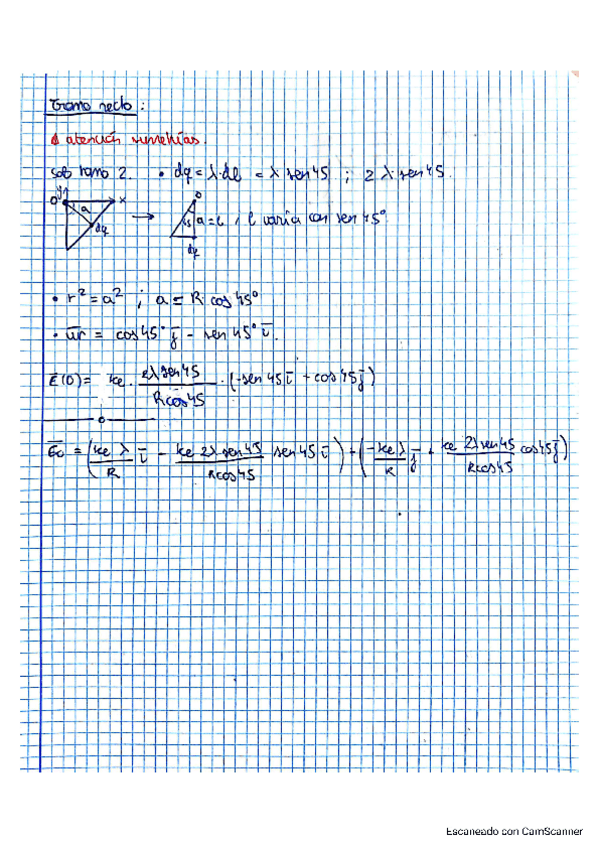 Tramo recto:
atención simetrías.
sob tramo 2. • dq = λ·dl = λ sen45 ; 2 λ·sen45.
O y x a dq → O 45 a = l, l varía con sen 45°
dq
• r² = a² ; a = R cos 45°
• ur = cos45° j - sen 45° i.
E(0) = ke · 2λ sen45 / R cos 45 · (-sen 45 i + cos45 j)
o
= (ke λ / R i - ke 2λ sen 45 / R cos45 sen 45 i) + (-ke λ / R j + ke 2λ sen45 / R cos45 cos45 j)
Escaneado con CamScanner